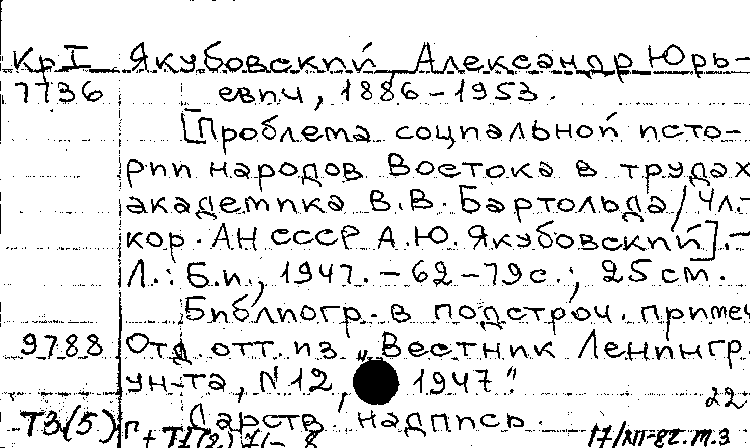 Кр I Якубовский, Александр Юрь-
7736 евич, 1886-1953.
[Проблема социальной исто-
рии народов Востока в трудах
академика В.В. Бартольда/Чл.-
кор. АН СССР А.Ю. Якубовский].-
Л.: Б.и., 1947. - 62-79 с.; 25 см.
Библиогр. в подстроч. примеч
9788 Отд. отт. из „Вестник Ленингр.
ун-та, N 12, 1947"
22
Т3(5) Дарств. надпись.
17/XII-82. т.э